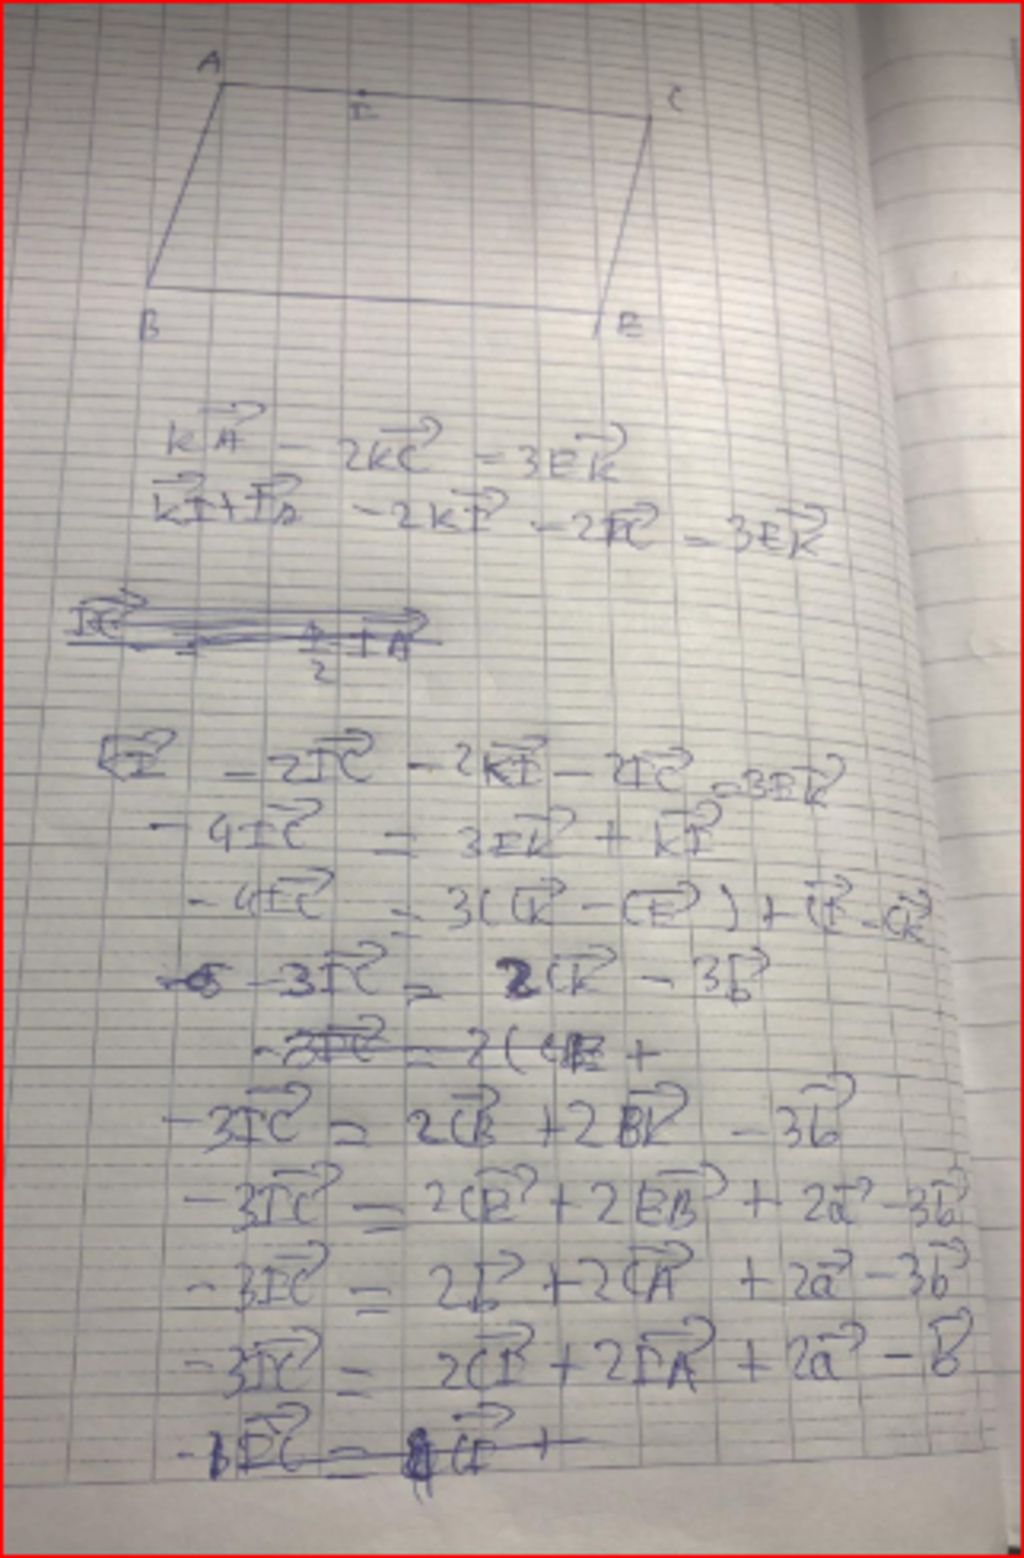 A
I
C
B
E
\overrightarrow{KA} - 2\overrightarrow{KC} = 3\overrightarrow{EK}
\overrightarrow{KI} + \overrightarrow{IA} - 2\overrightarrow{KI} - 2\overrightarrow{IC} = 3\overrightarrow{EK}
\overrightarrow{KI} - 2\overrightarrow{IC} - 2\overrightarrow{KI} - 2\overrightarrow{IC} = 3\overrightarrow{EK}
- 4\overrightarrow{IC} = 3\overrightarrow{EK} + \overrightarrow{KI}
- 4\overrightarrow{IC} = 3(\overrightarrow{CK} - \overrightarrow{CE}) + \overrightarrow{CI} - \overrightarrow{CK}
- 3\overrightarrow{IC} = 2\overrightarrow{CK} - 3\overrightarrow{b}
- 3\overrightarrow{IC} = 2\overrightarrow{CB} + 2\overrightarrow{BK} - 3\overrightarrow{b}
- 3\overrightarrow{IC} = 2\overrightarrow{CE} + 2\overrightarrow{EB} + 2\overrightarrow{a} - 3\overrightarrow{b}
- 3\overrightarrow{IC} = 2\overrightarrow{b} + 2\overrightarrow{CA} + 2\overrightarrow{a} - 3\overrightarrow{b}
- 3\overrightarrow{IC} = 2\overrightarrow{CI} + 2\overrightarrow{IA} + 2\overrightarrow{a} - \overrightarrow{b}